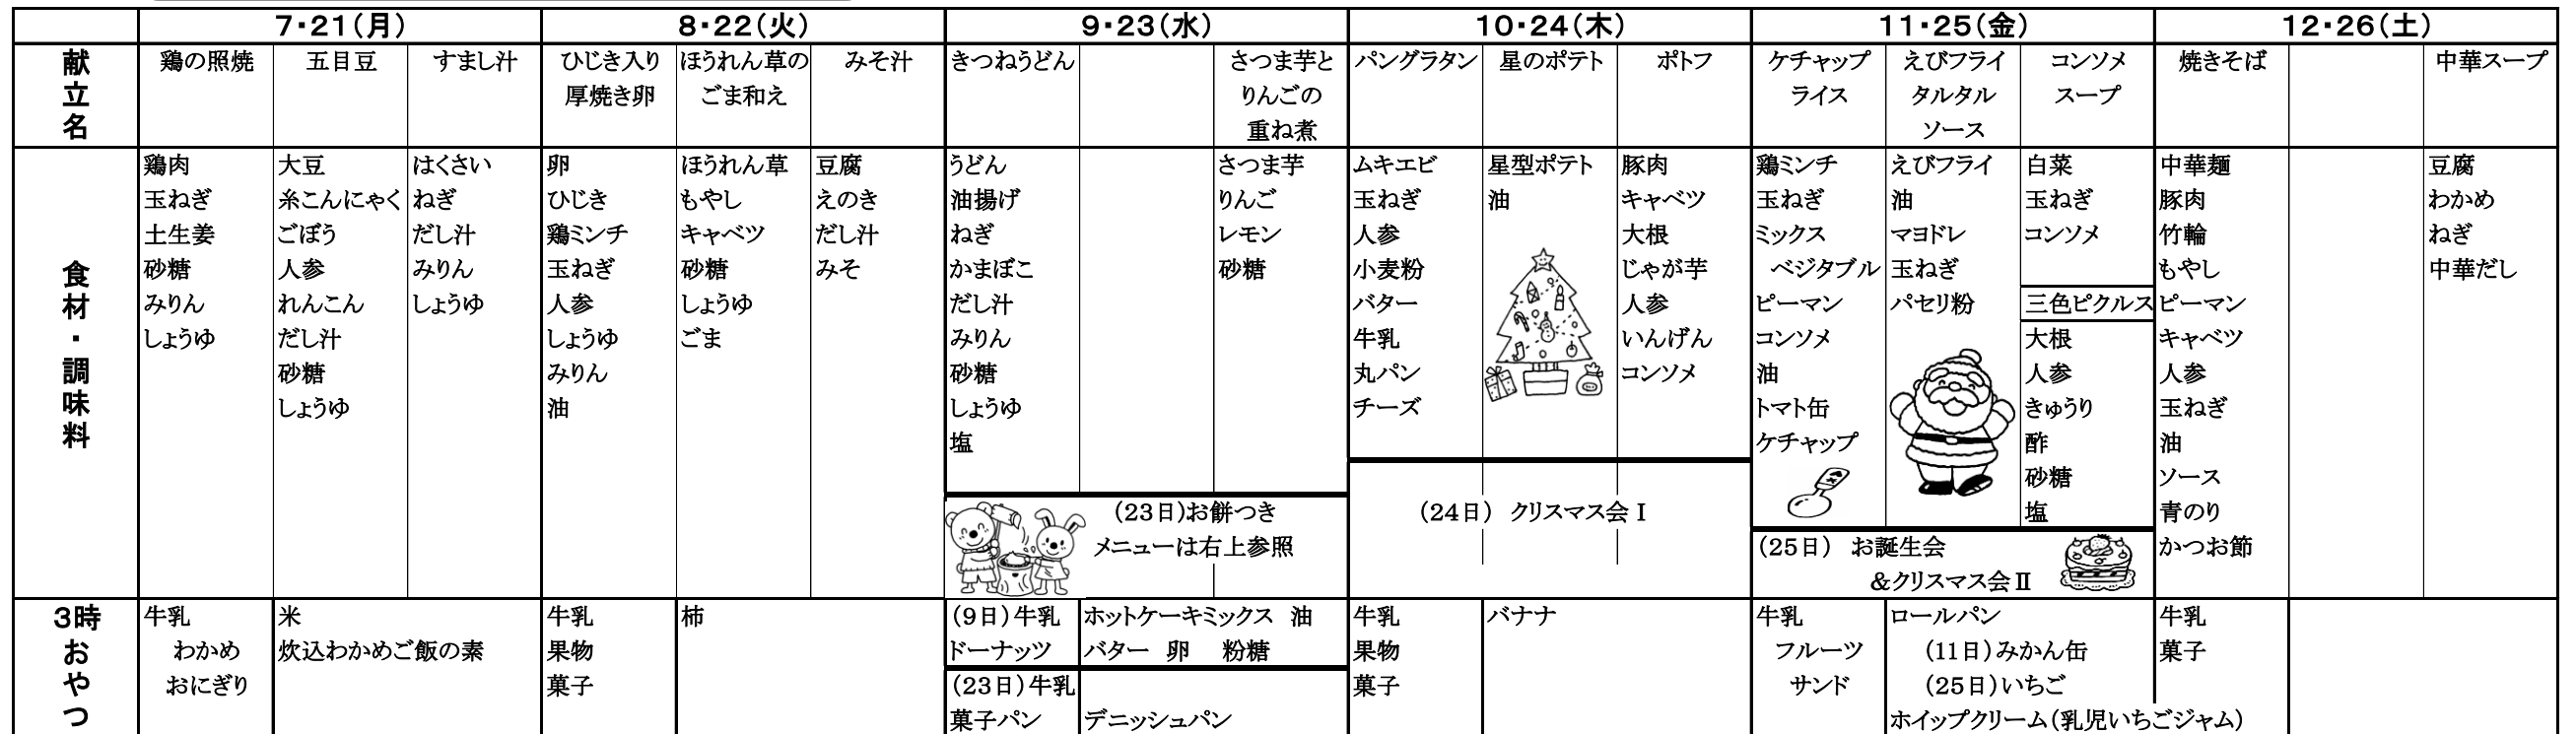 7・21(月)
8・22(火)
9・23(水)
10・24(木)
11・25(金)
12・26(土)
献立名
鶏の照焼
五目豆
すまし汁
ひじき入り
厚焼き卵
ほうれん草の
ごま和え
みそ汁
きつねうどん
さつま芋と
りんごの
重ね煮
パングラタン
星のポテト
ポトフ
ケチャップ
ライス
えびフライ
タルタル
ソース
コンソメ
スープ
焼きそば
中華スープ
食材・調味料
鶏肉
玉ねぎ
土生姜
砂糖
みりん
しょうゆ
大豆
糸こんにゃく
ごぼう
人参
れんこん
だし汁
砂糖
しょうゆ
はくさい
ねぎ
だし汁
みりん
しょうゆ
卵
ひじき
鶏ミンチ
玉ねぎ
人参
しょうゆ
みりん
油
ほうれん草
もやし
キャベツ
砂糖
しょうゆ
ごま
豆腐
えのき
だし汁
みそ
うどん
油揚げ
ねぎ
かまぼこ
だし汁
みりん
砂糖
しょうゆ
塩
さつま芋
りんご
レモン
砂糖
(23日)お餅つき
メニューは右上参照
ムキエビ
玉ねぎ
人参
小麦粉
バター
牛乳
丸パン
チーズ
星型ポテト
油
豚肉
キャベツ
大根
じゃが芋
人参
いんげん
コンソメ
(24日) クリスマス会Ⅰ
鶏ミンチ
玉ねぎ
ミックス
ベジタブル
ピーマン
コンソメ
油
トマト缶
ケチャップ
えびフライ
油
マヨドレ
玉ねぎ
パセリ粉
白菜
玉ねぎ
コンソメ
三色ピクルス
大根
人参
きゅうり
酢
砂糖
塩
(25日) お誕生会
&クリスマス会Ⅱ
中華麺
豚肉
竹輪
もやし
ピーマン
キャベツ
人参
玉ねぎ
油
ソース
青のり
かつお節
豆腐
わかめ
ねぎ
中華だし
3時おやつ
牛乳
わかめ
おにぎり
米
炊込わかめご飯の素
牛乳
果物
菓子
柿
(9日)牛乳
ドーナッツ
ホットケーキミックス 油
バター 卵 粉糖
(23日)牛乳
菓子パン
デニッシュパン
牛乳
果物
菓子
バナナ
牛乳
フルーツ
サンド
ロールパン
(11日)みかん缶
(25日)いちご
ホイップクリーム(乳児いちごジャム)
牛乳
菓子